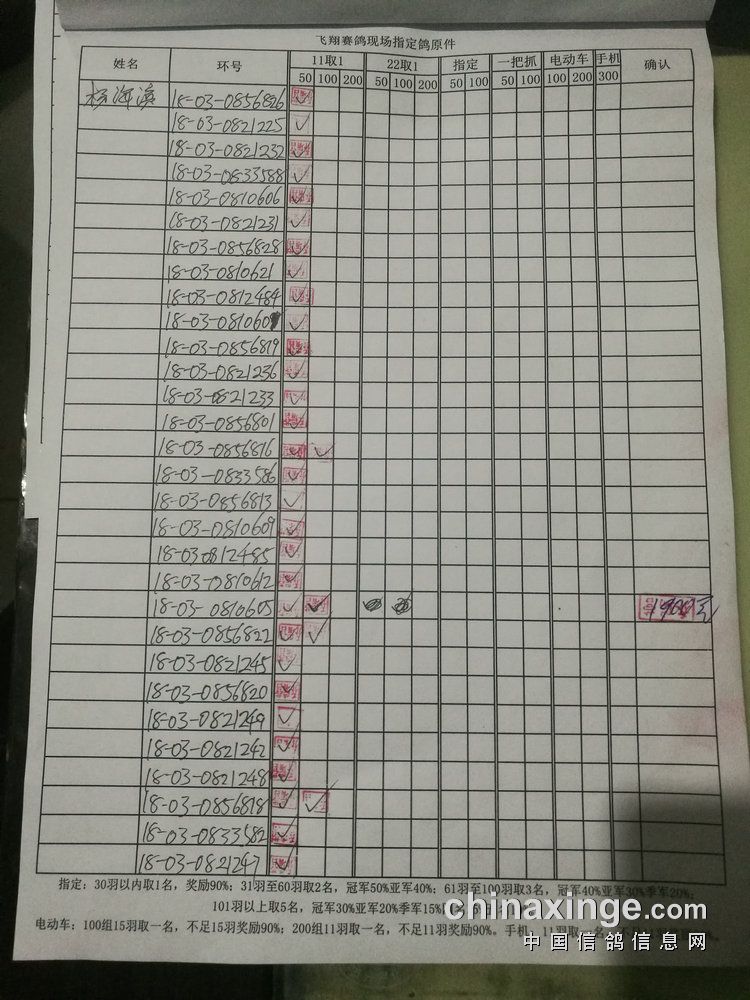 飞翔赛鸽现场指定鸽原件
姓名 环号 11取1 22取1 指定 一把抓 电动车 手机 确认
50 100 200 50 100 200 50 100 50 100 100 200 300
杨海滨 18-03-0856826
18-03-0821225
18-03-0821232
18-03-0833588
18-03-0810606
18-03-0821231
18-03-0856828
18-03-0810621
18-03-0812484
18-03-081060
18-03-0856819
18-03-0821236
18-03-0821233
18-03-0856801
18-03-0856816
18-03-0833586
18-03-0856813
18-03-0810609
18-03-0812485
18-03-0810612
18-03-0810605 1900元
18-03-0856822
18-03-0821245
18-03-0856820
18-03-0821249
18-03-0821242
18-03-0821248
18-03-0856818
18-03-0833582
18-03-0821247
指定：30羽以内取1名，奖励90%；31羽至60羽取2名，冠军50%亚军40%；61羽至100羽取3名，冠军40%亚军30%季军20%；
101羽以上取5名，冠军30%亚军20%季军15%
电动车：100组15羽取一名，不足15羽奖励90%；200组11羽取一名，不足11羽奖励90%。手机：11羽取一名，不足
chinaxinge.com
中国信鸽信息网